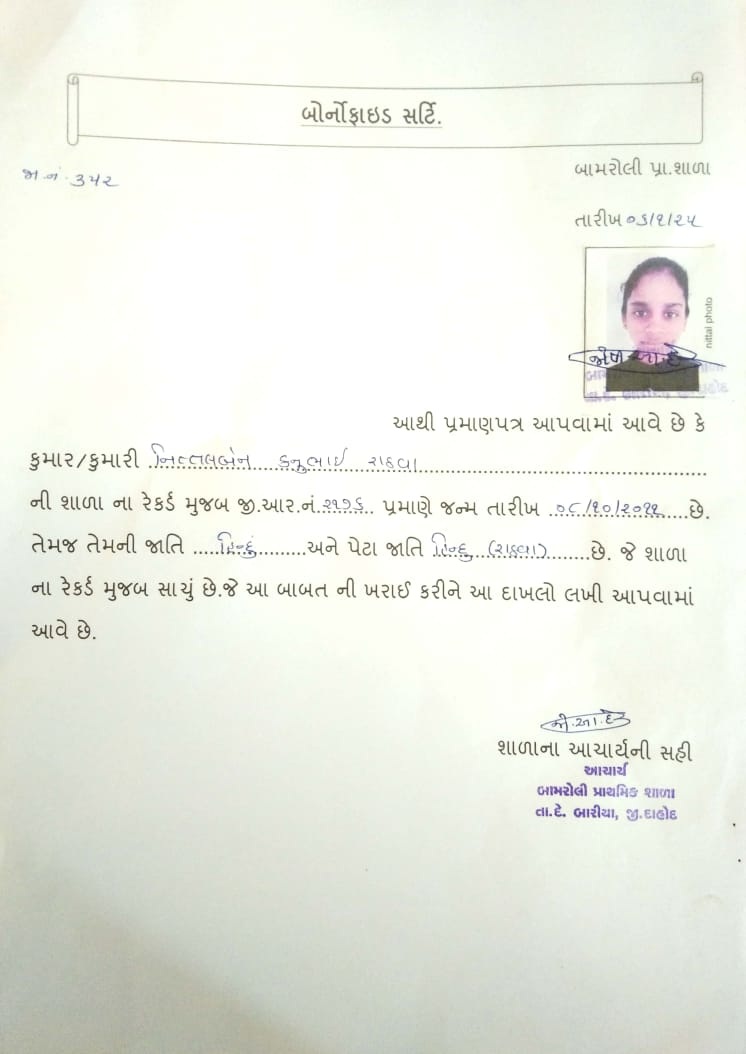 બોર્નોફાઇડ સર્ટિ.
જા.નં. ૩૫૨
બામરોલી પ્રા.શાળા
તારીખ ૦૬/૧/૨૫
nittal photo
આથી પ્રમાણપત્ર આપવામાં આવે છે કે
કુમાર/કુમારી નિત્તલબેન કનુભાઈ રાઠવા
ની શાળા ના રેકર્ડ મુજબ જી.આર.નં. ૨૧૭૬ પ્રમાણે જન્મ તારીખ ૦૮/૧૦/૨૦૧૧ છે.
તેમજ તેમની જાતિ હિન્દુ અને પેટા જાતિ હિન્દુ (રાઠવા) છે. જે શાળા
ના રેકર્ડ મુજબ સાચું છે.જે આ બાબત ની ખરાઈ કરીને આ દાખલો લખી આપવામાં
આવે છે.
શાળાના આચાર્યની સહી
આચાર્ય
બામરોલી પ્રાથમિક શાળા
તા.દે. બારીયા, જી.દાહોદ